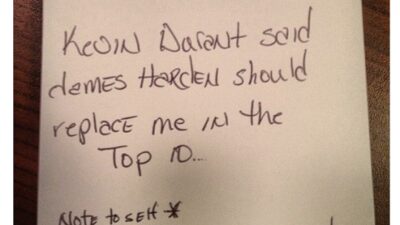 KevIN Darant said
James HARdeN should
RePLACE me IN the
Top 10...
Note to self *